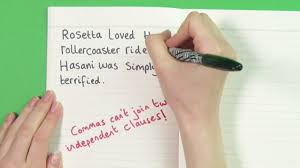 Rosetta Loved
rollercoaster ride
Hasani was simply
terrified.
Commas can't join
independent clauses!